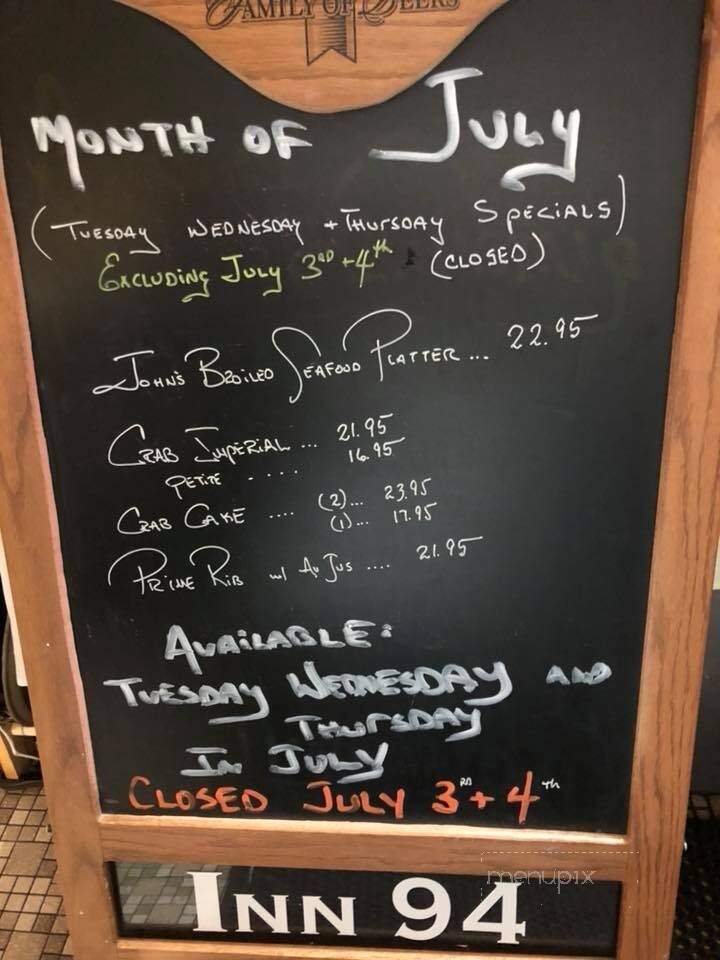 FAMILY OF BEERS
MONTH OF JULY
(TUESDAY WEDNESDAY + THURSDAY SPECIALS)
EXCLUDING JULY 3RD + 4th (CLOSED)
JOHN'S BROILED SEAFOOD PLATTER ... 22.95
CRAB IMPERIAL ... 21.95
PETITE . . . . 16.95
CRAB CAKE .... (2)... 23.95
(1)... 17.95
PRIME RIB w/ AU JUS .... 21.95
AVAILABLE:
TUESDAY WEDNESDAY AND
THURSDAY
IN JULY
CLOSED JULY 3RD + 4TH
menupix
INN 94